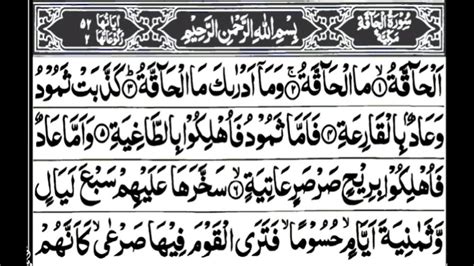 سُوْرَةُ الْحَآقَّةِ مَكِّيَّةٌ بِسْمِ اللهِ الرَّحْمٰنِ الرَّحِيْمِ اٰيَاتُهَا ٥٢ رُكُوْعَاتُهَا ٢
اَلْحَآقَّةُ ۙ﴿١﴾ مَا الْحَآقَّةُ ۚ﴿٢﴾ وَمَآ اَدْرٰىكَ مَا الْحَآقَّةُ ؕ﴿٣﴾ كَذَّبَتْ ثَمُوْدُ
وَعَادٌۢ بِالْقَارِعَةِ ﴿٤﴾ فَاَمَّا ثَمُوْدُ فَاُهْلِكُوْا بِالطَّاغِيَةِ ﴿٥﴾ وَاَمَّا عَادٌ
فَاُهْلِكُوْا بِرِيْحٍ صَرْصَرٍ عَاتِيَةٍ ۙ﴿٦﴾ سَخَّرَهَا عَلَيْهِمْ سَبْعَ لَيَالٍ
وَّثَمٰنِيَةَ اَيَّامٍ ۙ حُسُوْمًا ۙ فَتَرَى الْقَوْمَ فِيْهَا صَرْعٰى ۙ كَاَنَّهُمْ